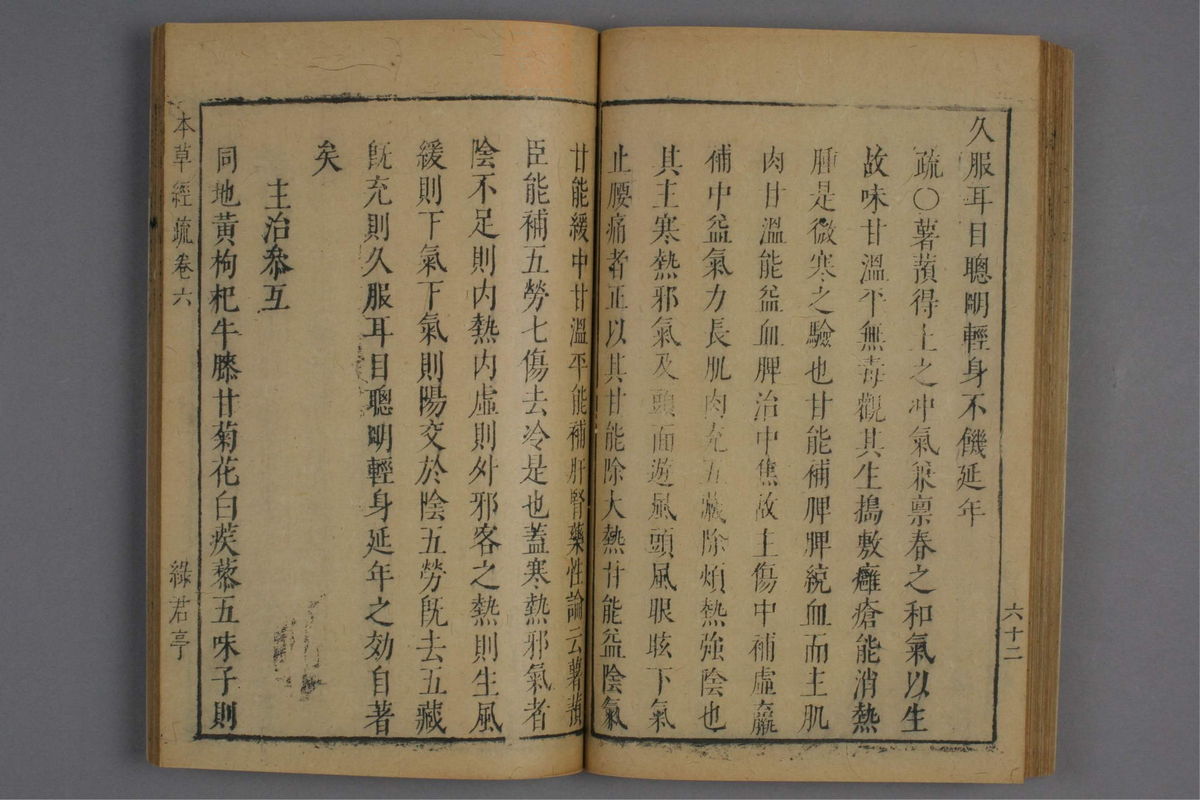 久服耳目聰明輕身不饑延年
疏〇薯蕷得土之冲氣兼禀春之和氣以生
故味甘溫平無毒觀其生搗敷癰瘡能消熱
腫是微寒之驗也甘能補脾脾統血而主肌
肉甘溫能益血脾治中焦故主傷中補虛羸
補中益氣力長肌肉充五藏除煩熱強陰也
其主寒熱邪氣及頭面遊風頭風眼眩下氣
止腰痛者正以其甘能除大熱甘能益陰氣
甘能緩中甘溫平能補肝腎藥性論云薯蕷
臣能補五勞七傷去冷是也蓋寒熱邪氣者
陰不足則內熱內虛則外邪客之熱則生風
緩則下氣下氣則陽交於陰五勞旣去五藏
旣充則久服耳目聰明輕身延年之効自著
矣
主治叅互
同地黃枸杞牛膝甘菊花白蒺藜五味子則
六十二
本草經疏卷六
綠君亭